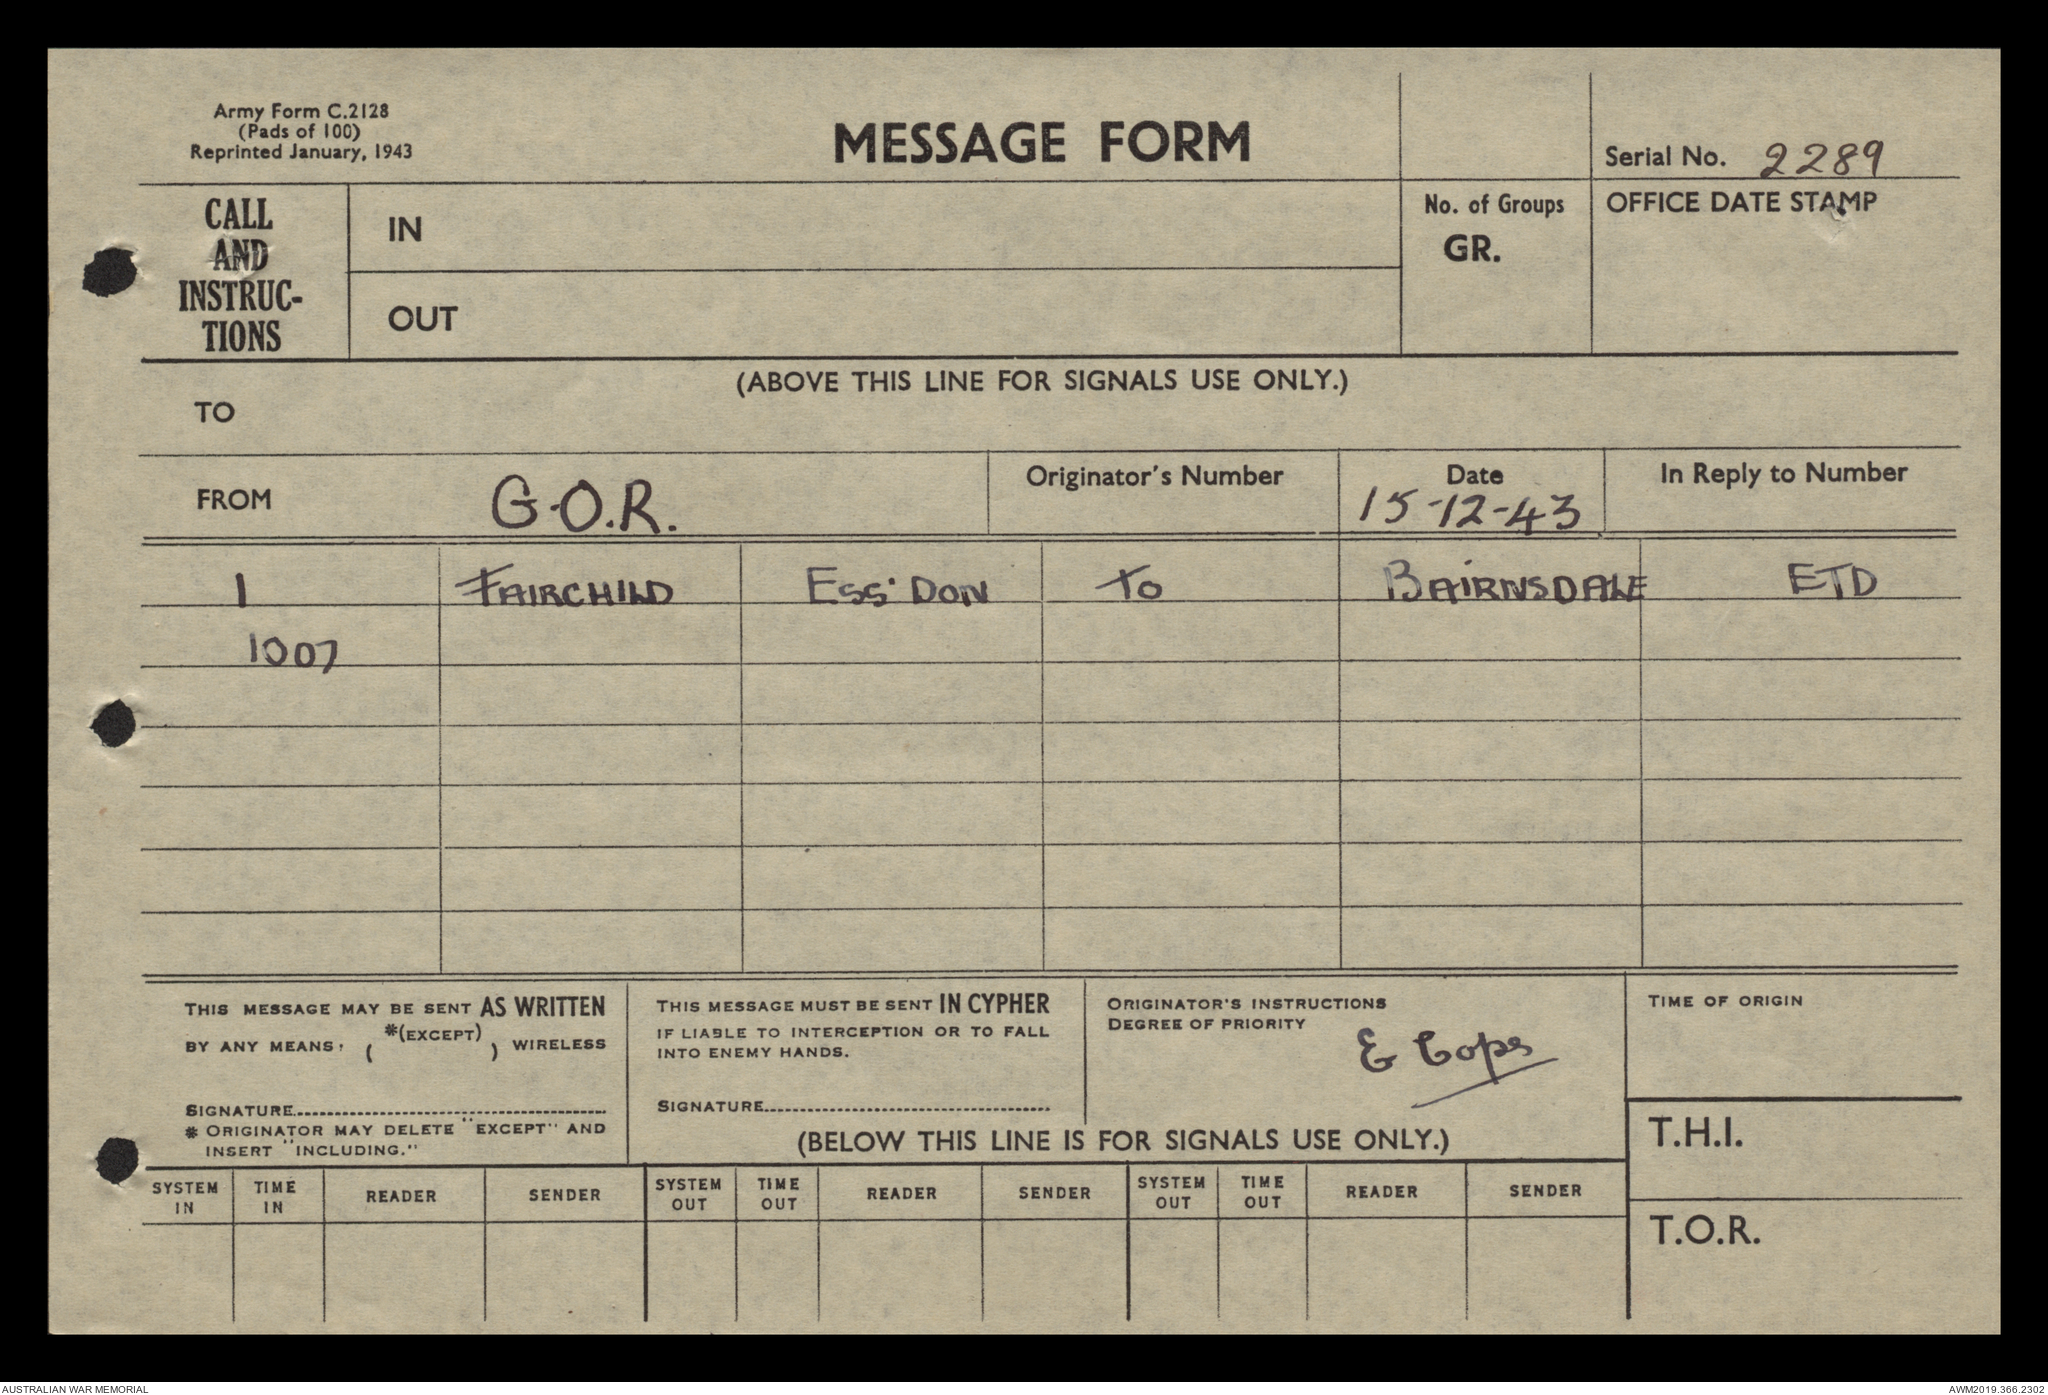 Army Form C.2128
(Pads of 100)
Reprinted January, 1943
MESSAGE FORM
Serial No. 2289
CALL
AND
INSTRUC-
TIONS
IN
OUT
No. of Groups
GR.
OFFICE DATE STAMP
(ABOVE THIS LINE FOR SIGNALS USE ONLY.)
TO
FROM G.O.R.
Originator's Number
Date
15-12-43
In Reply to Number
1 FAIRCHILD ESS'DON TO BAIRNSDALE ETD
1007
THIS MESSAGE MAY BE SENT AS WRITTEN
BY ANY MEANS, ( *(EXCEPT) ) WIRELESS
SIGNATURE
* ORIGINATOR MAY DELETE "EXCEPT" AND
INSERT "INCLUDING."
THIS MESSAGE MUST BE SENT IN CYPHER
IF LIABLE TO INTERCEPTION OR TO FALL
INTO ENEMY HANDS.
SIGNATURE
ORIGINATOR'S INSTRUCTIONS
DEGREE OF PRIORITY
E Cops
TIME OF ORIGIN
(BELOW THIS LINE IS FOR SIGNALS USE ONLY.)
T.H.I.
T.O.R.
SYSTEM IN TIME IN READER SENDER SYSTEM OUT TIME OUT READER SENDER SYSTEM OUT TIME OUT READER SENDER
AUSTRALIAN WAR MEMORIAL AWM2019.366.2302